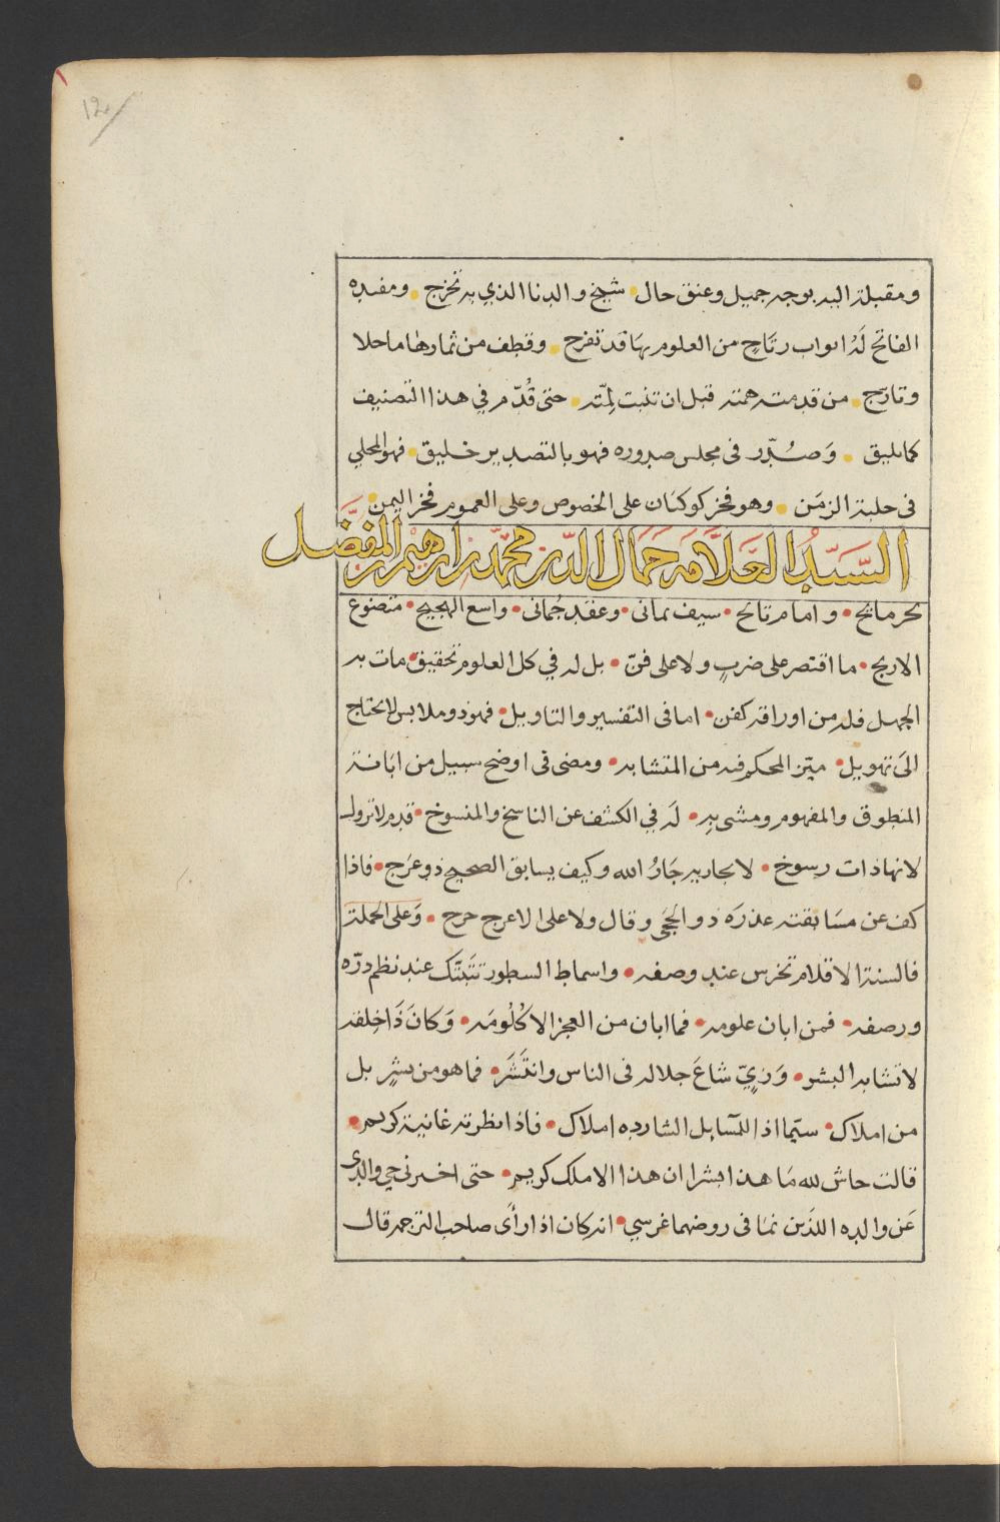 12
ومقبلة اليه بوجه جميل وعنق حال شيخ والدنا الذي به تخرج ومفيده
الفاتح له ابواب رتاج من العلوم بها قد تفرج وقطف من ثمارها ما حلا
وتارج من قدمته همته قبل ان تنبت لمّته حتى قُدّم في هذا التصنيف
كما يليق وَصُدّر في مجلس صدوره فهو بالتصدير خليق فهو المحلي
في حلبة الزمَن وهو فخر كوكبان على الخصوص وعلى العموم فخر اليمن
السَّيّدُ العَلاَّمَة جَمَال الدّين محمّد بن ابرهيم بن المفضَّل
بحر مائح وامام تائح سيف يماني وعقد جُماني واسع الهجيج متضوع
الاريج ما اقتصر على ضربٍ ولا على فنّ بل له في كل العلوم تحقيق مات به
الجهل فله من اوراقه كفن اما في التفسير والتاويل فهو ذو ملابس لا تحتاج
الىَ تهويل ميّز المحكم فيه من المتشابه ومضى في اوضح سبيل من ابَانة
المنطوق والمفهوم ومشى بهِ لَه في الكشف عن الناسخ والمنسوخ قدم لا تزول
لانها ذات رسوخ لا يجاريه جَارُ الله وكيف يسابق الصحيح ذو عَرَج فاذا
كف عن مسَابقته عذرَه ذو الحِجَى وقال ولا على الاعرج حرج وَعلى الجملة
فالسنة الاقلام تخرس عند وصفه واسماط السطور تتَبتّك عند نظم درّه
ورصفه فمن ابان علومه فما ابان من العجز الا كُلُومَه وَكانَ ذَا خِلقه
لا تشابه البشر وَزيٍّ شاعَ جلاله في الناس وانتَشَر فما هو من بشرٍ بل
من املاك سيّما اذ للمسَايل الشارده املاك فاذا نظرته غانية كريم
قالت حاش لله مَا هذا بشرا ان هذا الا ملك كريم حتى اخبرني حي والدي
عَن والده اللذَين نمَا في روضهما غرسي انه كان اذا رأى صاحب الترجمه قال